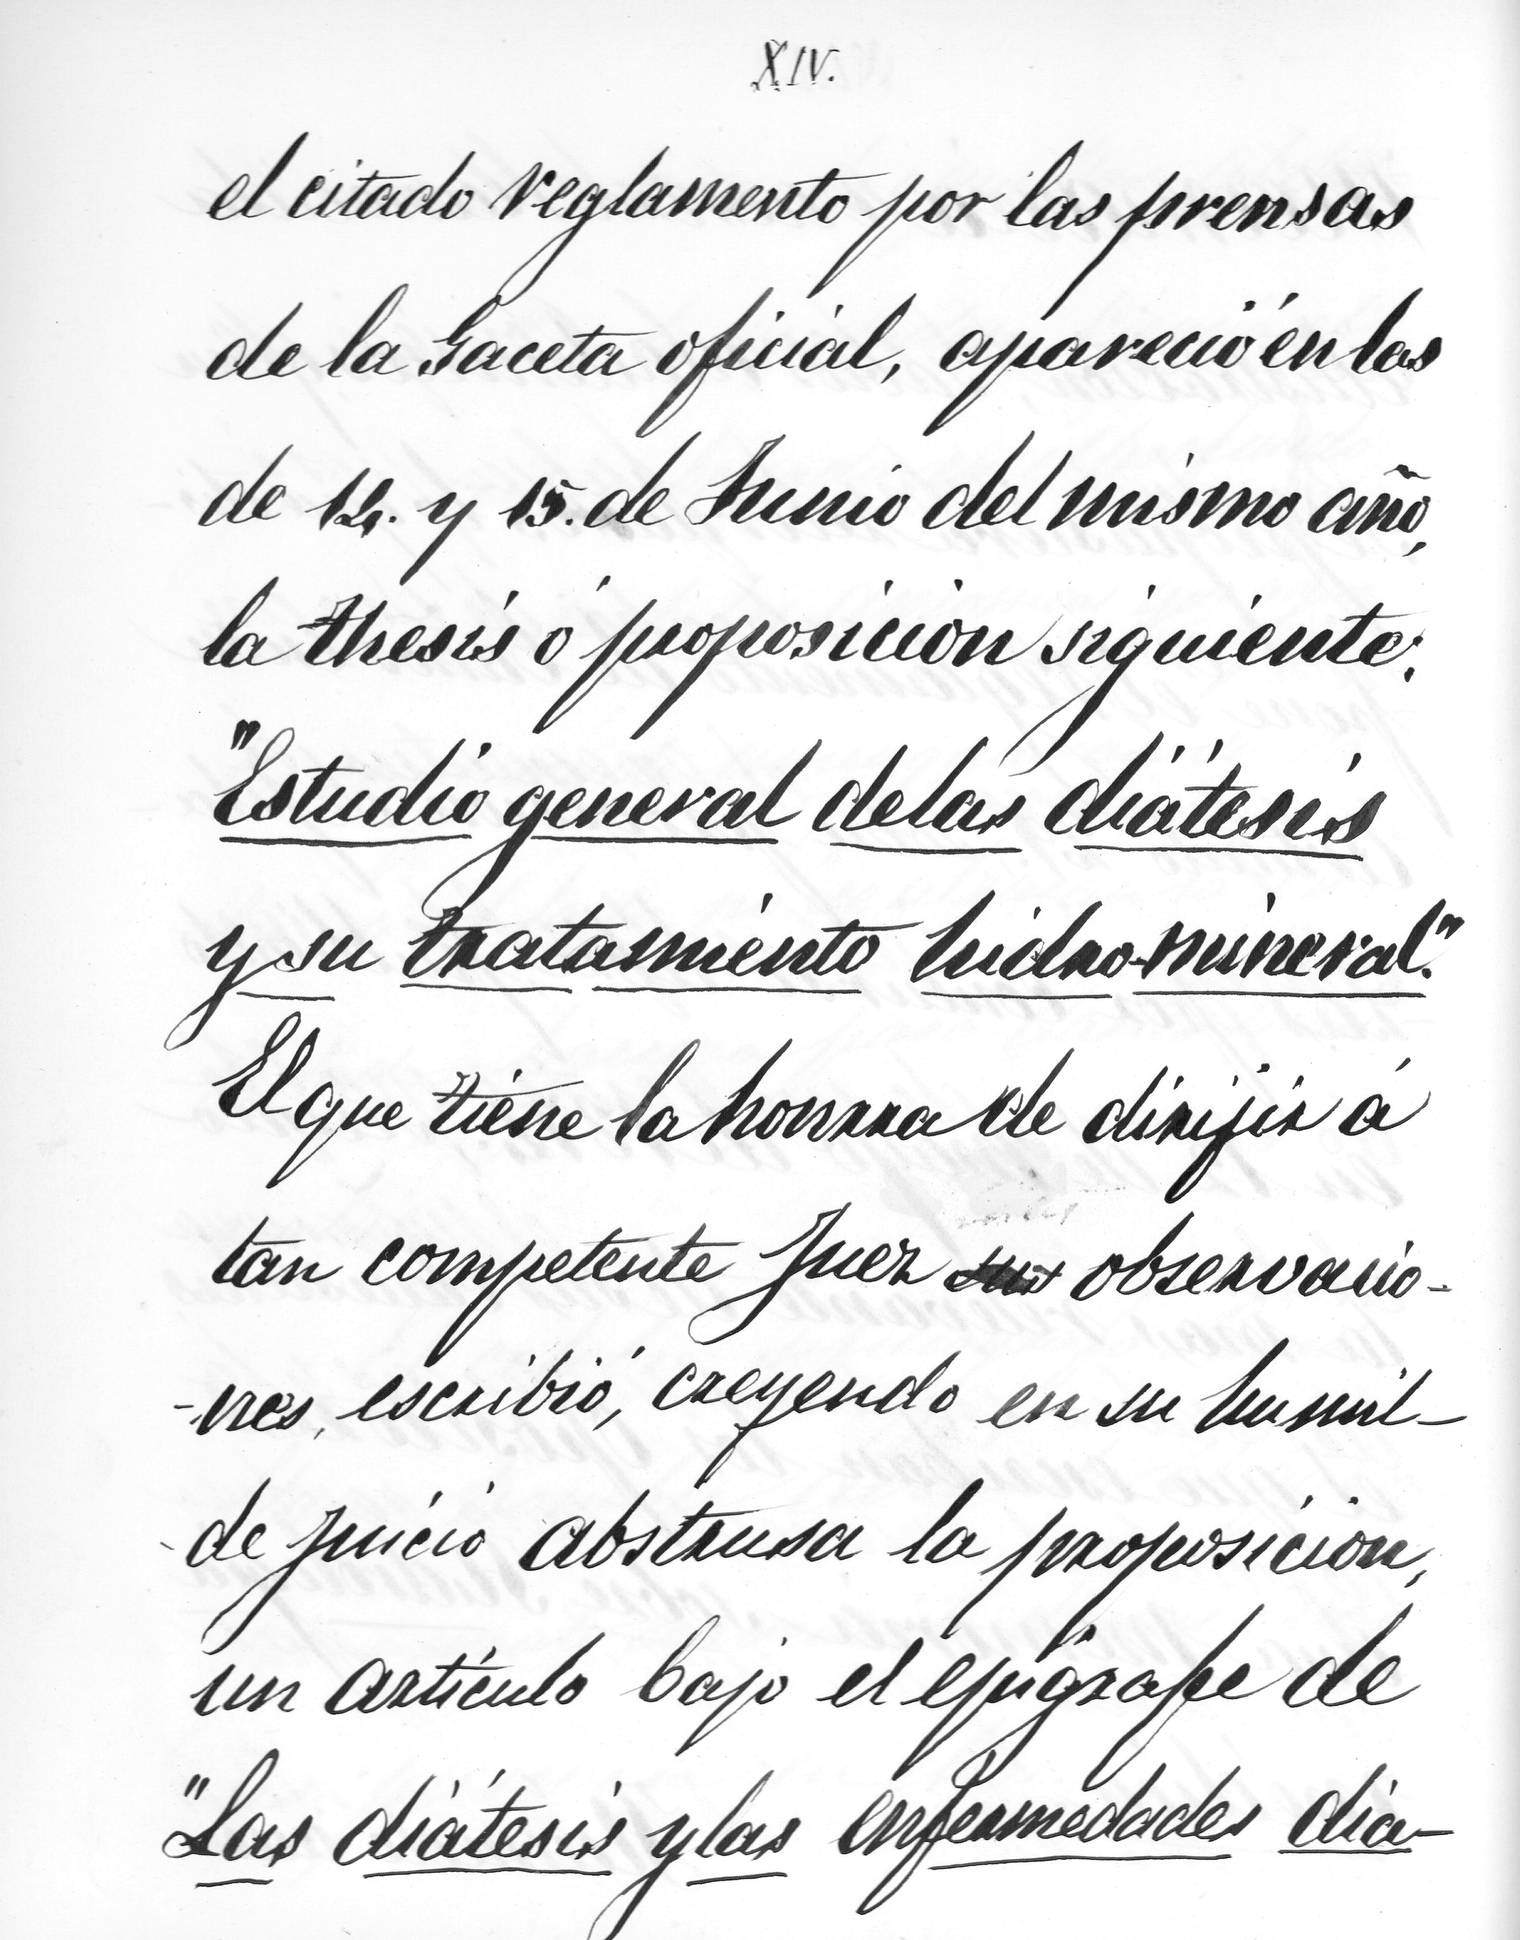 XIV.
el citado reglamento por las prensas
de la Gaceta oficial, apareció en las
de 14. y 15. de Junio del mismo año,
la thesis ó proposicion siguiente:
"Estudio general de las diátesis
y su tratamiento hidro-mineral."
El que tiene la honrra de dirijir á
tan competente Juez sus observacio-
-nes, escribió, creyendo en su humil-
-de juicio abstrusa la proposicion,
un artículo bajo el epígrafe de
"Las diátesis y las enfermedades dia-